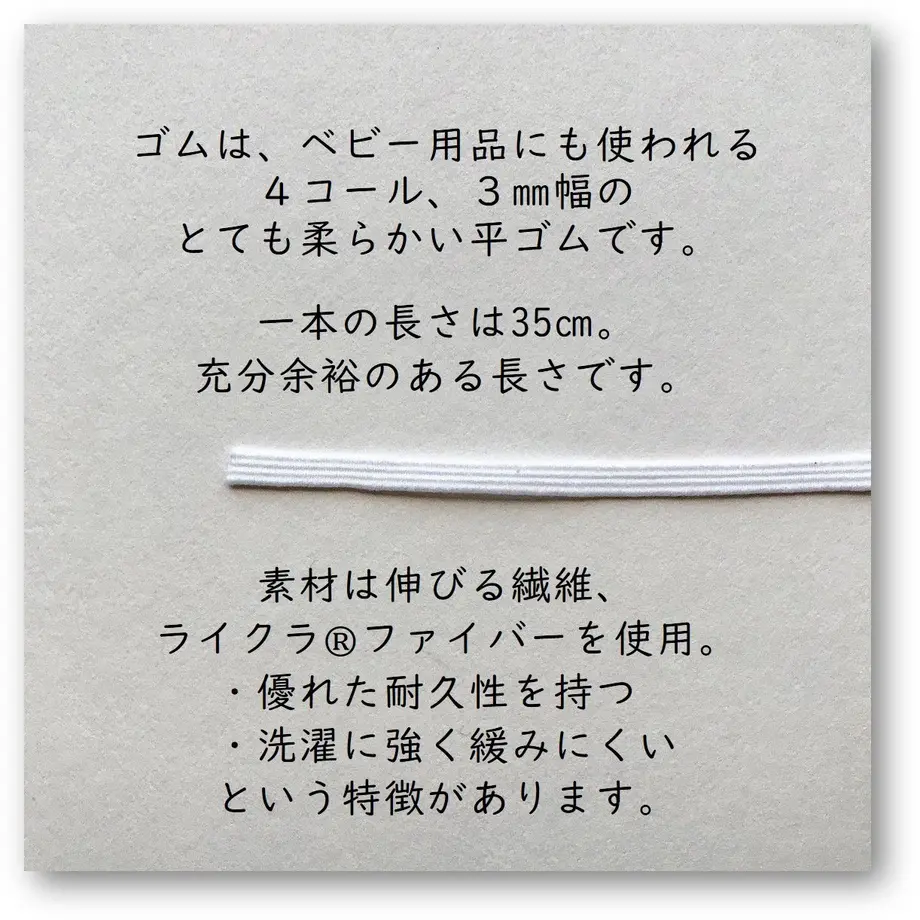 ゴムは、ベビー用品にも使われる
４コール、３㎜幅の
とても柔らかい平ゴムです。
一本の長さは35㎝。
充分余裕のある長さです。
素材は伸びる繊維、
ライクラ®ファイバーを使用。
・優れた耐久性を持つ
・洗濯に強く緩みにくい
という特徴があります。